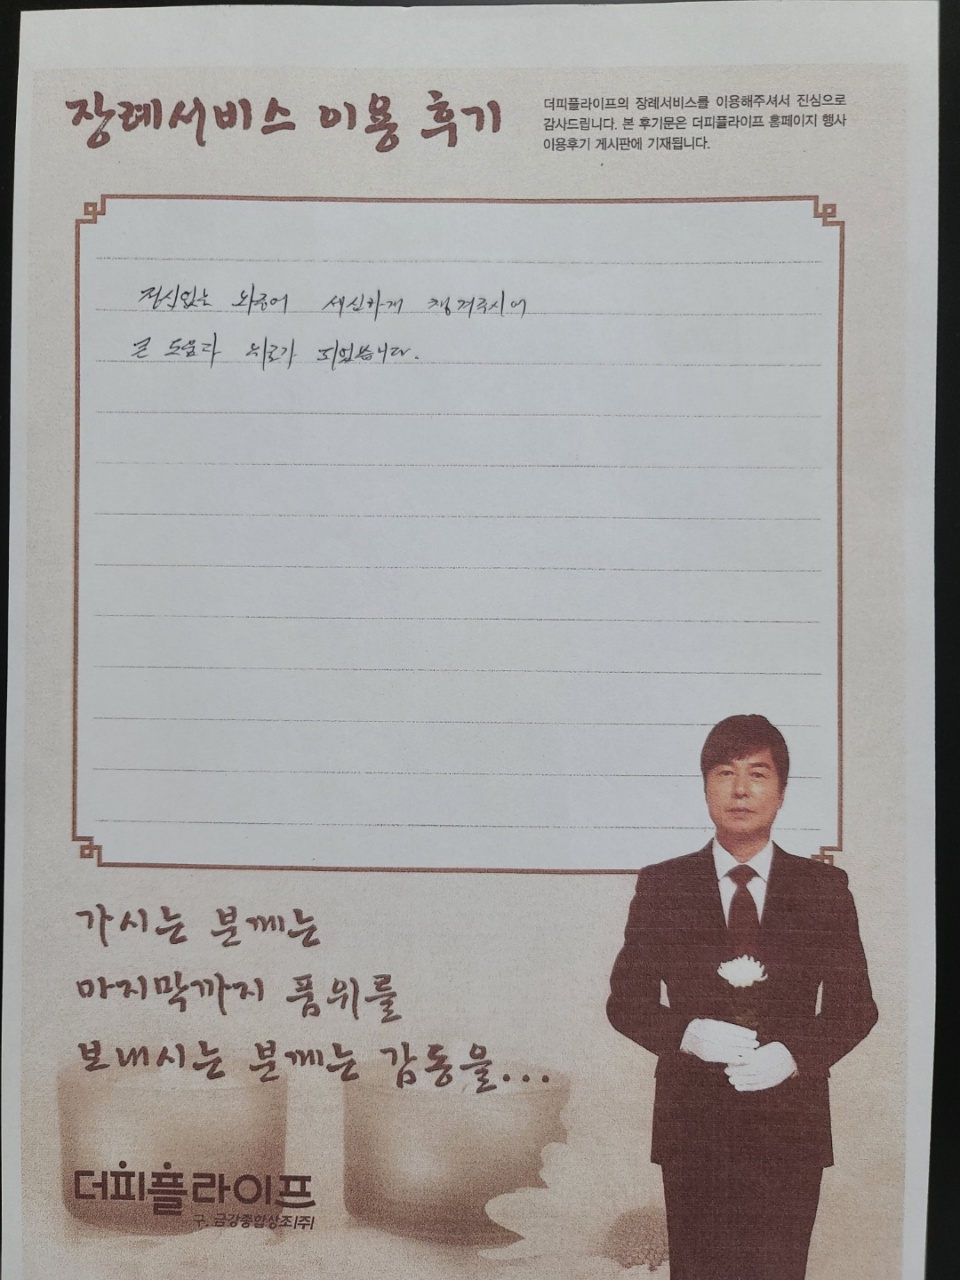 장례서비스 이용 후기
더피플라이프의 장례서비스를 이용해주셔서 진심으로
감사드립니다. 본 후기문은 더피플라이프 홈페이지 행사
이용후기 게시판에 기재됩니다.
정신없는 와중에 세심하게 챙겨주시어
큰 도움과 위로가 되었습니다.
가시는 분께는
마지막까지 품위를
보내시는 분께는 감동을...
더피플라이프
구, 금강종합상조(주)